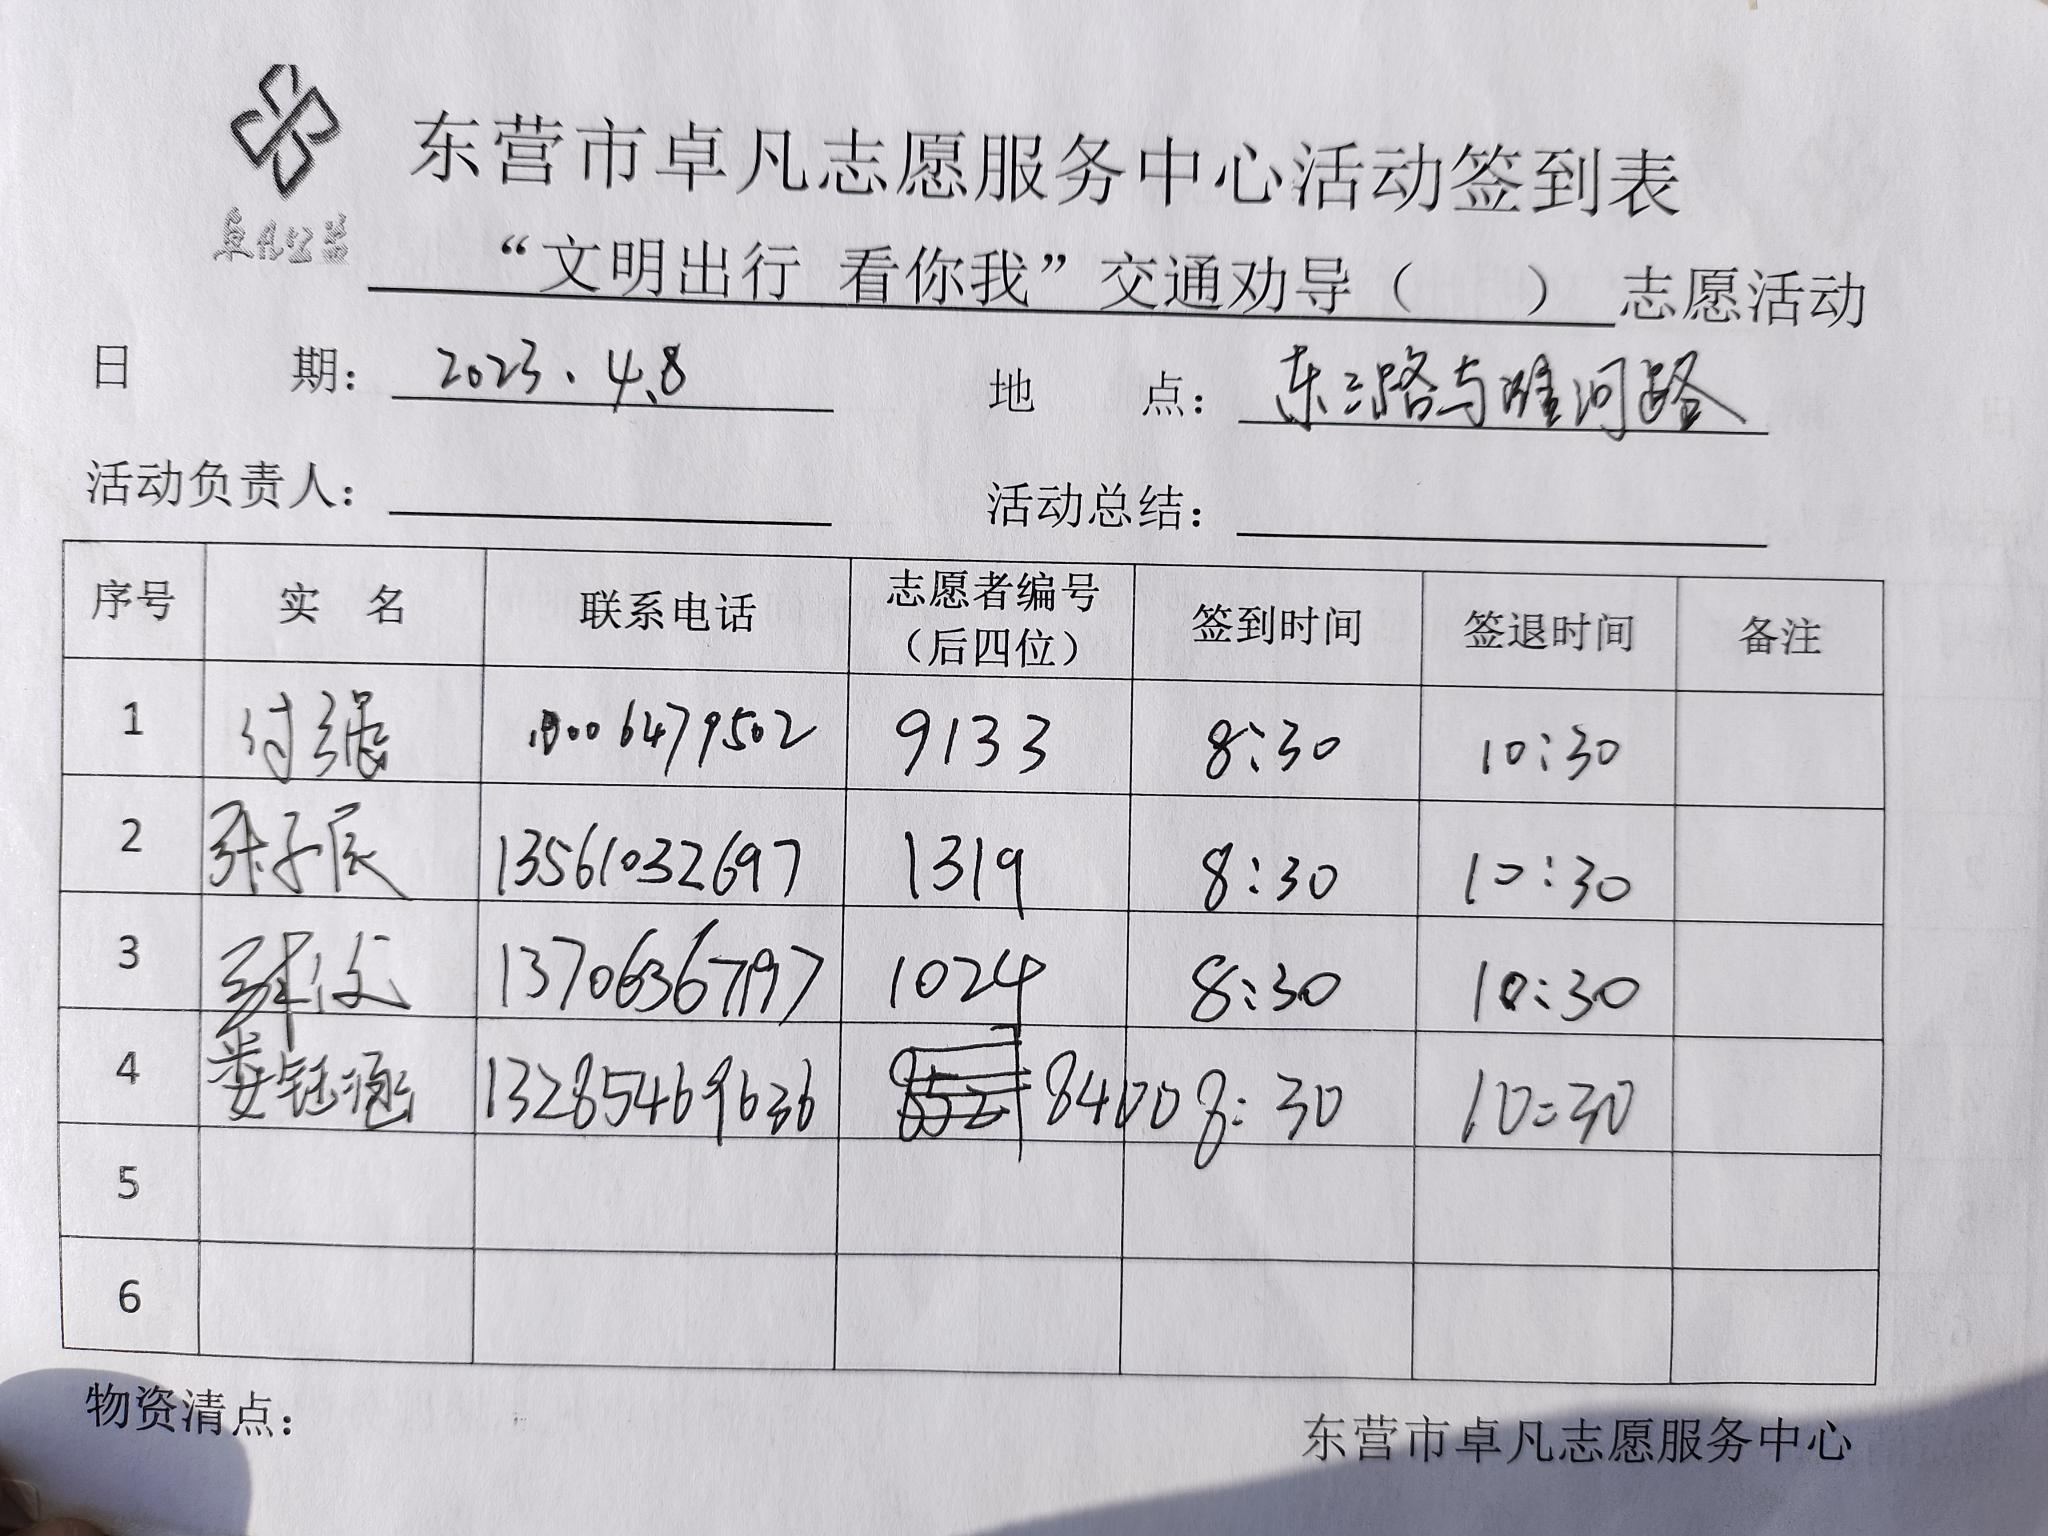 卓凡公益
东营市卓凡志愿服务中心活动签到表
“文明出行 看你我”交通劝导（ ）志愿活动
日 期： 2023.4.8 地 点： 东三路与潍河路
活动负责人： 活动总结：
序号 实 名 联系电话 志愿者编号（后四位） 签到时间 签退时间 备注
1 付强 6479502 9133 8:30 10:30
2 张子辰 13561032697 1319 8:30 10:30
3 13706367197 1024 8:30 10:30
4 娄钰涵 13285469636 8400 8:30 10:30
5
6
物资清点：
东营市卓凡志愿服务中心